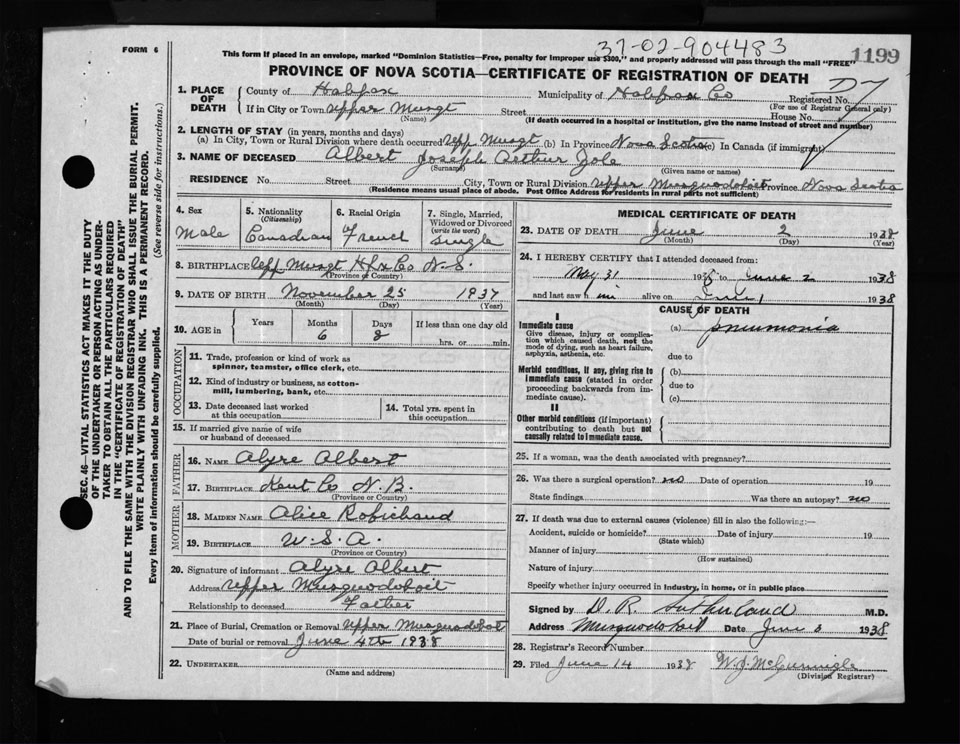 37-02-904483
1199
FORM 6
This form if placed in an envelope, marked "Dominion Statistics—Free, penalty for improper use $300," and properly addressed will pass through the mail "FREE"
PROVINCE OF NOVA SCOTIA—CERTIFICATE OF REGISTRATION OF DEATH
SEC. 46—VITAL STATISTICS ACT MAKES IT THE DUTY
OF THE UNDERTAKER OR PERSON ACTING AS UNDER-
TAKER TO OBTAIN ALL THE PARTICULARS REQUIRED
IN THE "CERTIFICATE OF REGISTRATION OF DEATH"
AND TO FILE THE SAME WITH THE DIVISION REGISTRAR WHO SHALL ISSUE THE BURIAL PERMIT.
WRITE PLAINLY WITH UNFADING INK. THIS IS A PERMANENT RECORD.
Every item of information should be carefully supplied. (See reverse side for instructions.)
1. PLACE OF DEATH
County of Halifax Municipality of Halifax Co Registered No.
(For use of Registrar General only)
If in City or Town Upper Musqt Street House No.
(Name) (If death occurred in a hospital or institution, give the name instead of street and number)
2. LENGTH OF STAY (in years, months and days)
(a) In City, Town or Rural Division where death occurred Upp Musqt (b) In Province Nova Scotia (c) In Canada (if immigrant)
3. NAME OF DECEASED Albert Joseph Arthur Zole
(Surname) (Given name or names)
RESIDENCE No. Street City, Town or Rural Division Upper Musquodoboit Province Nova Scotia
(Residence means usual place of abode. Post Office Address for residents in rural parts not sufficient)
4. Sex
Male
5. Nationality
(Citizenship)
Canadian
6. Racial Origin
French
7. Single, Married, Widowed or Divorced
(write the word)
single
8. BIRTHPLACE Upp Musqt Hfx Co N.S.
(Province or Country)
9. DATE OF BIRTH November 25 1937
(Month) (Day) (Year)
10. AGE in Years Months Days If less than one day old
6 8 hrs. or min.
OCCUPATION
11. Trade, profession or kind of work as
spinner, teamster, office clerk, etc.
12. Kind of industry or business, as cotton-
mill, lumbering, bank, etc.
13. Date deceased last worked
at this occupation
14. Total yrs. spent in
this occupation
15. If married give name of wife
or husband of deceased
FATHER
16. NAME Alyre Albert
17. BIRTHPLACE Kent Co N.B.
(Province or Country)
MOTHER
18. MAIDEN NAME Alice Robichaud
19. BIRTHPLACE U.S.A.
(Province or Country)
20. Signature of informant Alyre Albert
Address Upper Musquodoboit
Relationship to deceased Father
21. Place of Burial, Cremation or Removal Upper Musquodoboit
Date of burial or removal June 4th 1938
22. UNDERTAKER
(Name and address)
MEDICAL CERTIFICATE OF DEATH
23. DATE OF DEATH June 2 1938
(Month) (Day) (Year)
24. I HEREBY CERTIFY that I attended deceased from:
May 31 1938 to June 2 1938
and last saw him alive on June 1 1938
CAUSE OF DEATH
I
Immediate cause
Give disease, injury or complica-
tion which caused death, not the
mode of dying, such as heart failure,
asphyxia, asthenia, etc.
(a) pneumonia
due to
Morbid conditions, if any, giving rise to
immediate cause (stated in order
proceeding backwards from im-
mediate cause).
(b)
due to
(c)
II
Other morbid conditions (if important)
contributing to death but not
causally related to immediate cause.
25. If a woman, was the death associated with pregnancy?
26. Was there a surgical operation? no Date of operation 19
State findings Was there an autopsy? no
27. If death was due to external causes (violence) fill in also the following:—
Accident, suicide or homicide? Date of injury 19
(State which)
Manner of injury
(How sustained)
Nature of injury
Specify whether injury occurred in industry, in home, or in public place
Signed by D. R. Sutherland M.D.
Address Musquodoboit Date June 3 1938
28. Registrar's Record Number
29. Filed June 14 1938 W. J. McGunnigle
(Division Registrar)